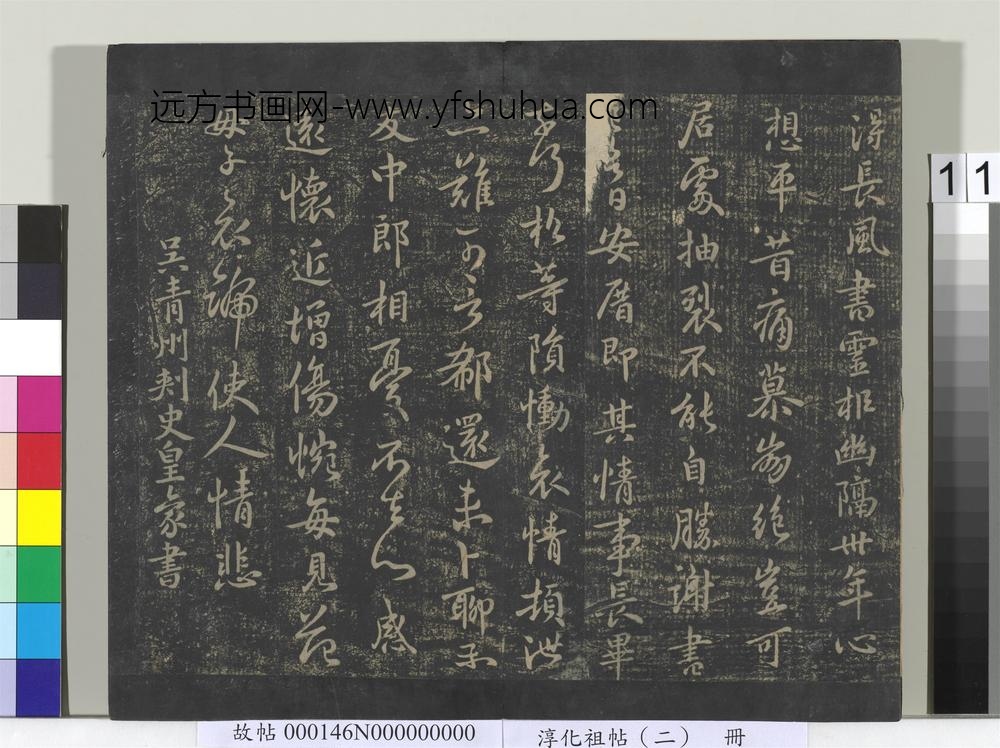 得長風書靈柩幽隔卅年心
想平昔痛慕崩絕豈可
居處抽裂不能自勝謝書
安厝即其情事長畢
松等隕慟哀情頓泄
一難可言郗還未卜聊示
友中郎相憂不去心感
遠懷近增傷惋每見范
母子哀號使人情悲
吳青州刺史皇象書
远方书画网-www.yfshuhua.com
11
故帖 000146N000000000
淳化祖帖（二） 冊